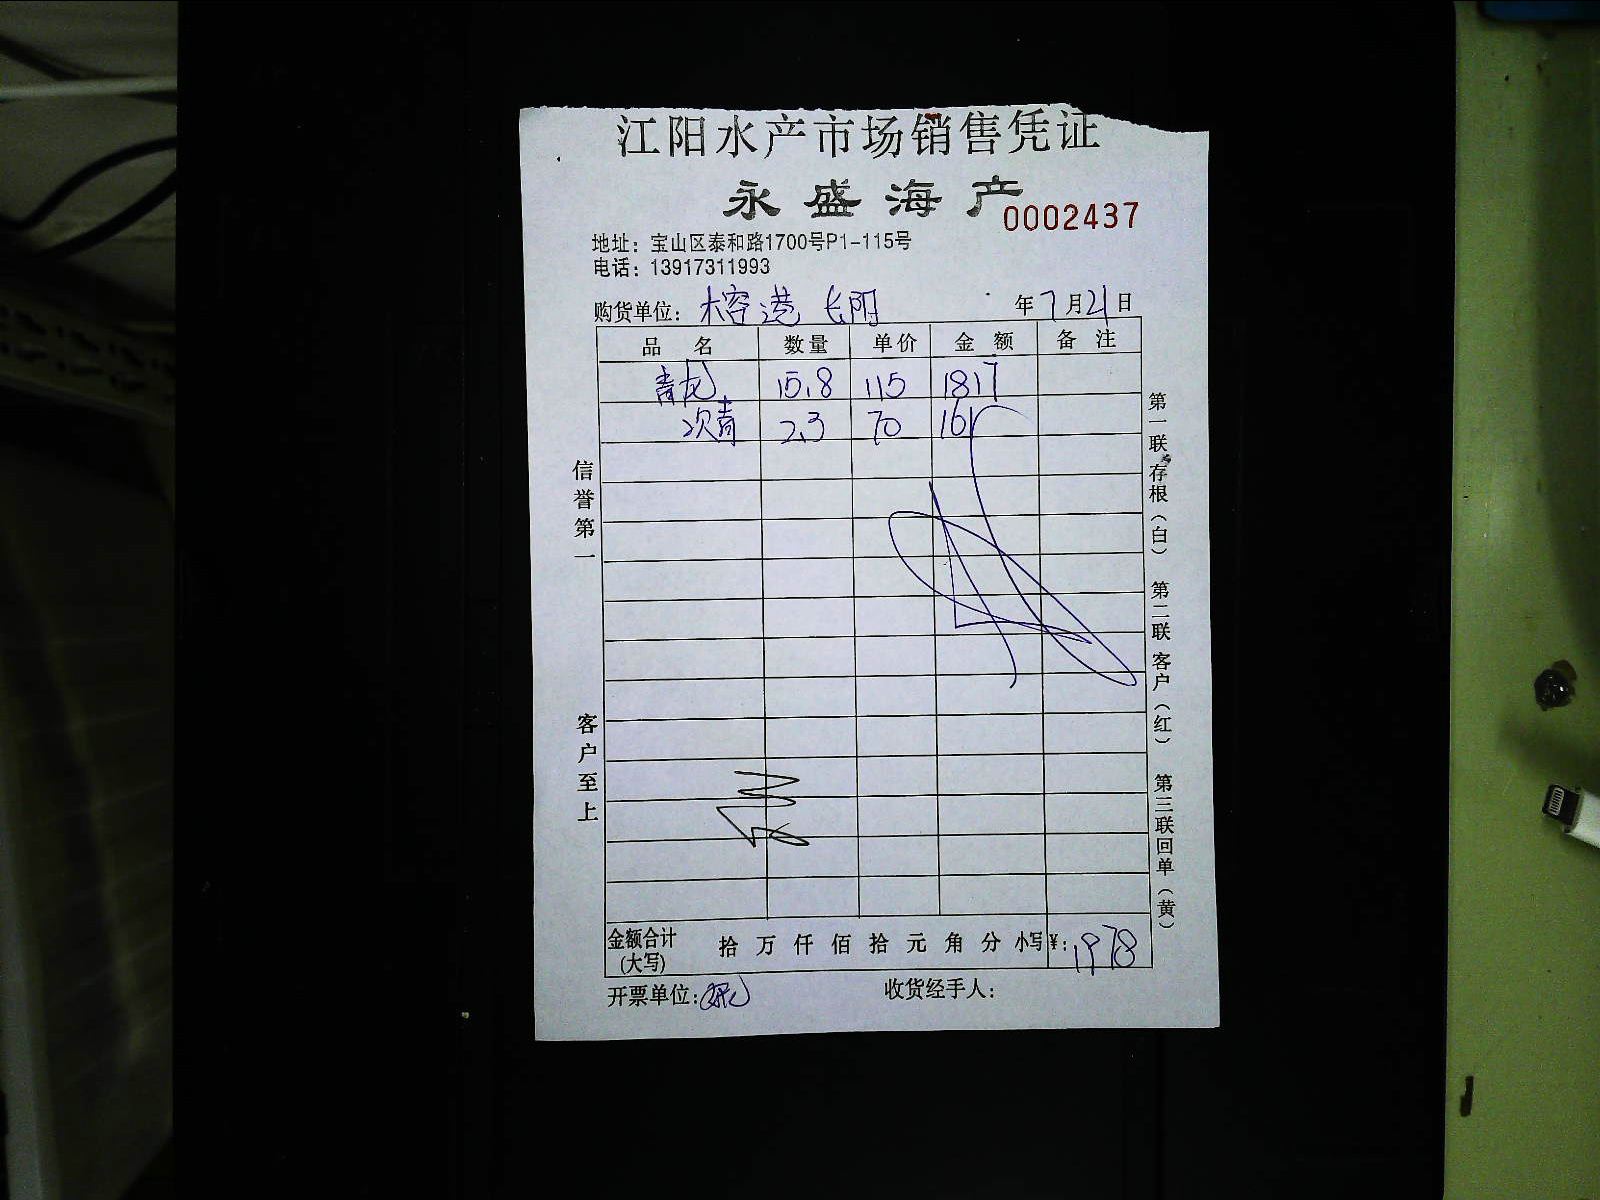 江阳水产市场销售凭证
永盛海产
0002437
地址：宝山区泰和路1700号P1-115号
电话：13917311993
购货单位：榕港 长阳 年7月21日
品名 数量 单价 金额 备注
青龙 15.8 115 1817
次青 2.3 70 161
信誉第一
客户至上
第一联存根（白） 第二联客户（红） 第三联回单（黄）
金额合计(大写) 拾万仟佰拾元角分 小写¥：1978
开票单位： 收货经手人：